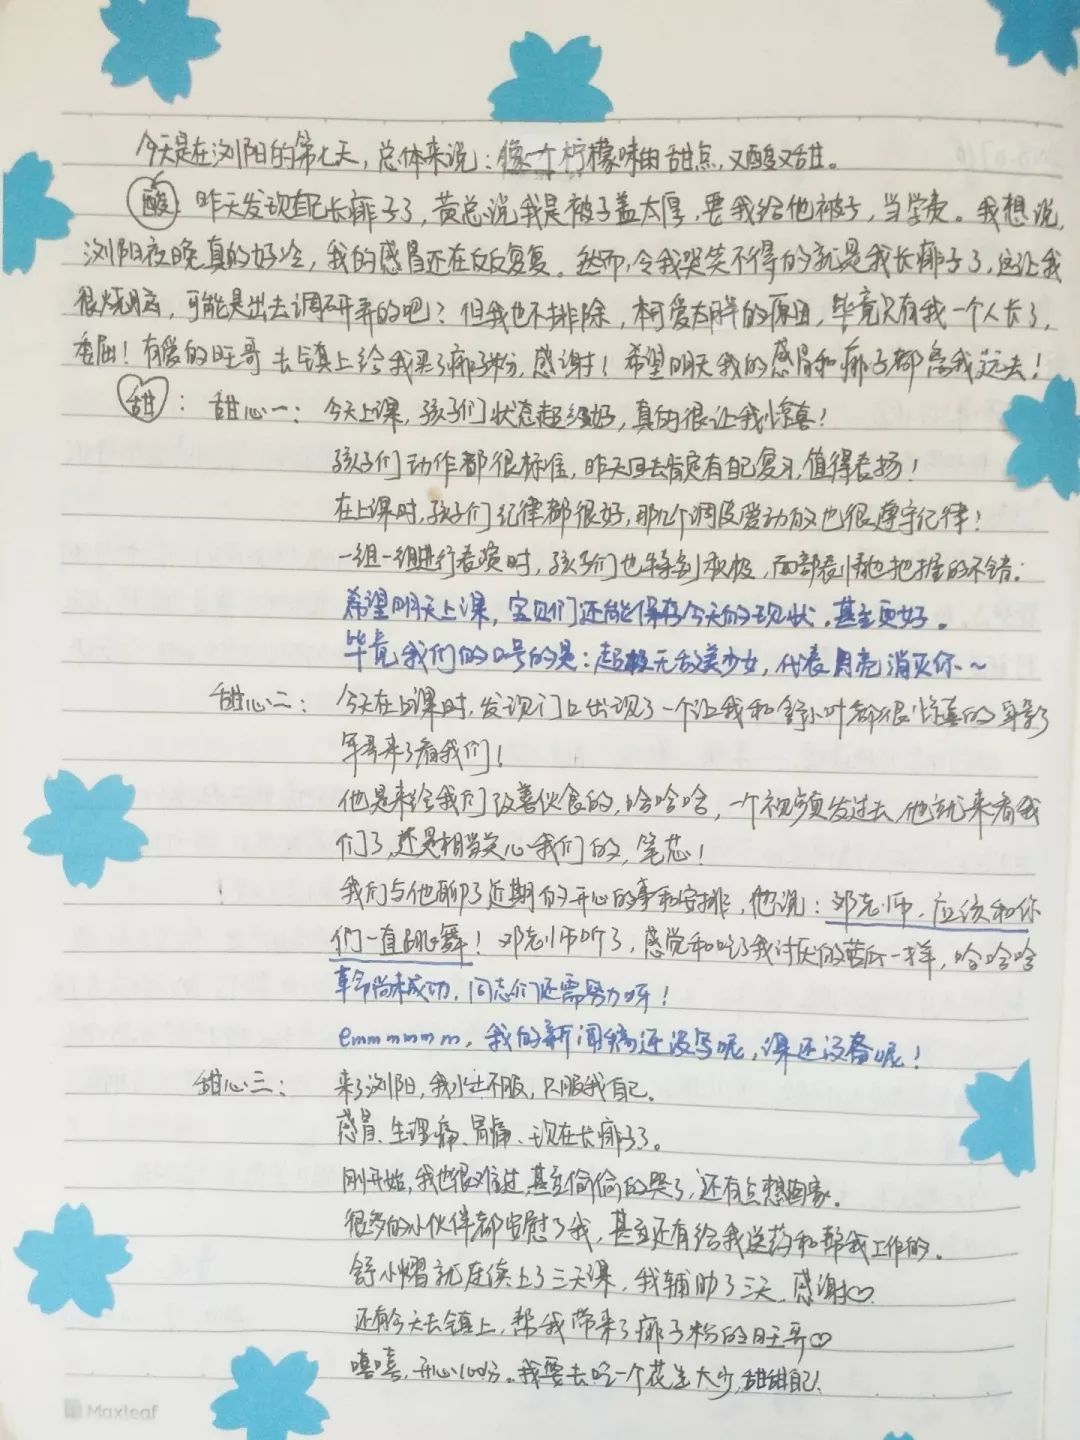 今天是在浏阳的第七天，总体来说：像一个柠檬味的甜点，又酸又甜。
酸：昨天发现自己长痱子了，黄总说我是被子盖太厚，要我给他被子，当学费。我想说，
浏阳夜晚真的好冷，我的感冒还在反反复复。然而，令我哭笑不得的就是我长痱子了，这让我
很烧脑，可能是出去调研弄的吧？但我也不排除，可爱太胖的原因，毕竟只有我一个人长了，
委屈！有爱的旺哥去镇上给我买了痱子粉，感谢！希望明天我的感冒和痱子都离我远去！
甜：甜心一：今天上课，孩子们状态超级好，真的很让我惊喜！
孩子们动作都很标准，昨天回去肯定有自己复习，值得表扬！
在上课时，孩子们纪律都很好，那几个调皮爱动的也很遵守纪律！
一组一组进行表演时，孩子们也特别积极，面部表情也把握的不错。
希望明天上课，宝贝们还能保存今天的现状，甚至更好。
毕竟我们的口号的是：超级无敌美少女，代表月亮消灭你～
甜心二：今天在上课时，发现门口出现了一个让我和舒小叶都很惊喜的身影
军哥来了看我们！
他是来给我们改善伙食的，哈哈哈，一个视频发过去，他就来看我
们了，还是相当关心我们的，笔芯！
我们与他聊了近期的开心的事和安排，他说：邓老师，应该和你
们一直跳舞！邓老师听了，感觉和吃了我讨厌的苦瓜一样，哈哈哈
革命尚未成功，同志们还需努力呀！
emmmmmm，我的新闻稿还没写呢，课还没备呢！
甜心三：来了浏阳，我水土不服，只服我自己。
感冒、生理痛、胃痛、现在长痱子了。
刚开始，我也很难过，甚至偷偷的哭了，还有点想回家。
很多的小伙伴都安慰了我，甚至还有给我送药和帮我工作的。
舒小熠就连续上了三天课，我辅助了三天，感谢♡
还有今天去镇上，帮我带来了痱子粉的旺哥♡
嘻嘻，开心100分。我要去吃一个花生太少，甜甜自己！
Maxleaf